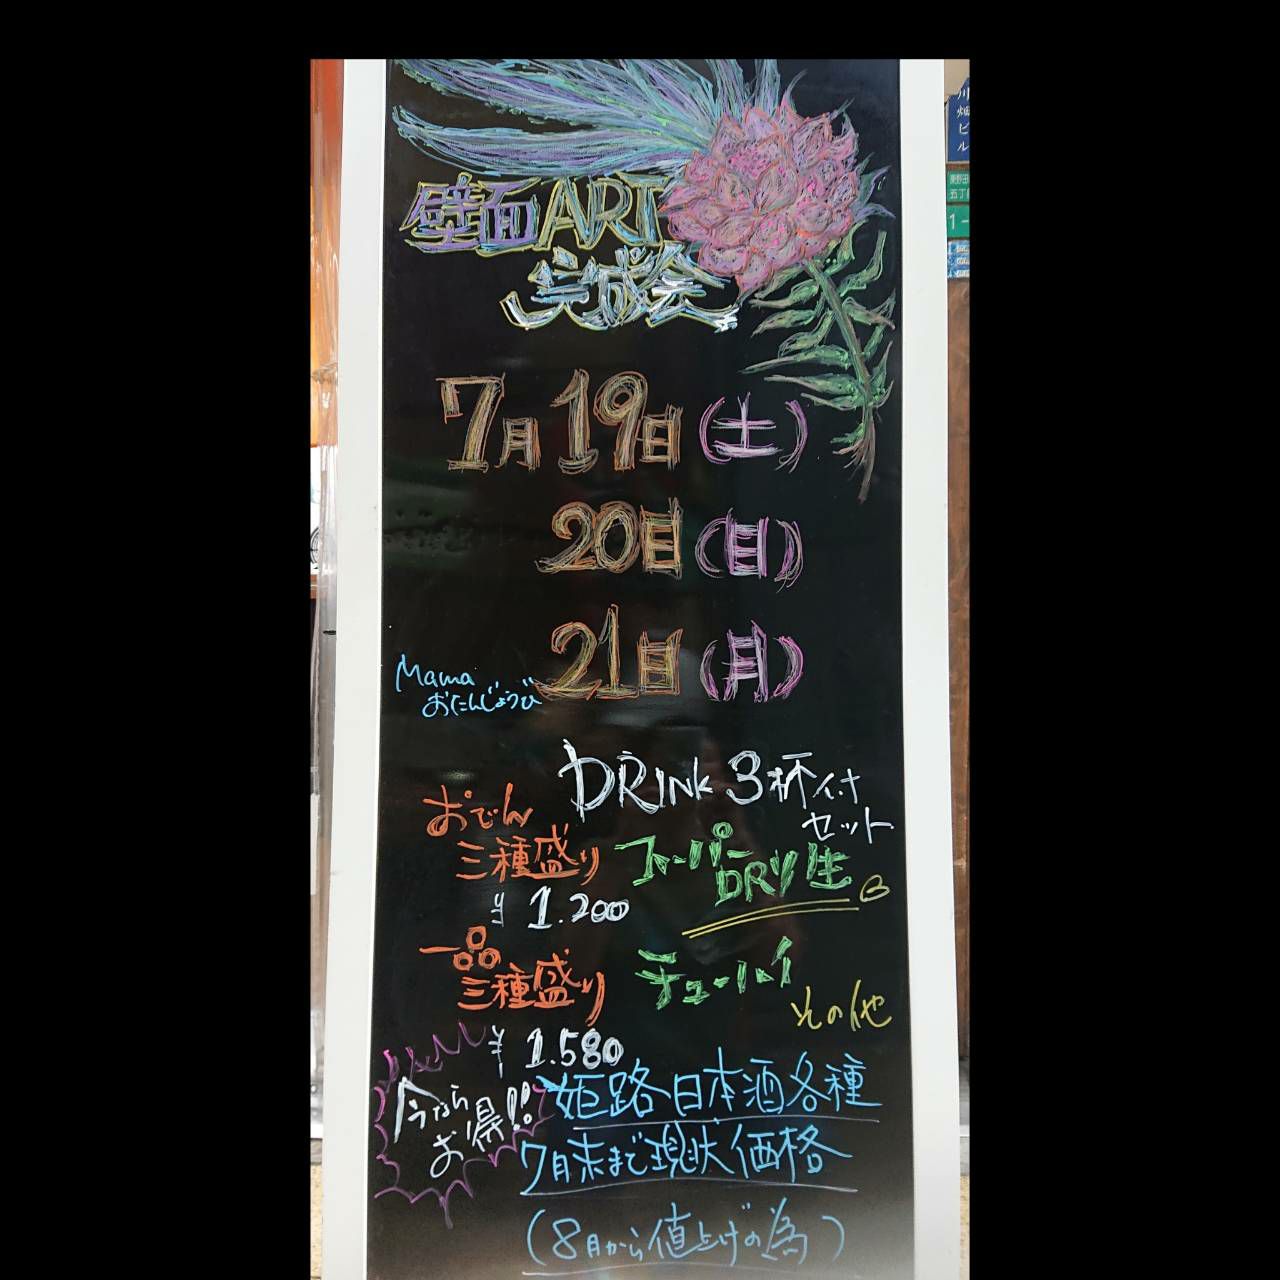 壁面ART
完成会
7月19日(土)
20日(日)
21日(月)
Mama
おたんじょうび
DRINK 3杯付
セット
おでん
三種盛り
¥1.200
スーパー
DRY生
一品
三種盛り
¥1.580
チューハイ
その他
今なら
お得!!
姫路日本酒各種
7月末まで現状価格
(8月から値上げの為)
川畑ビル
東野田
五丁目
1-